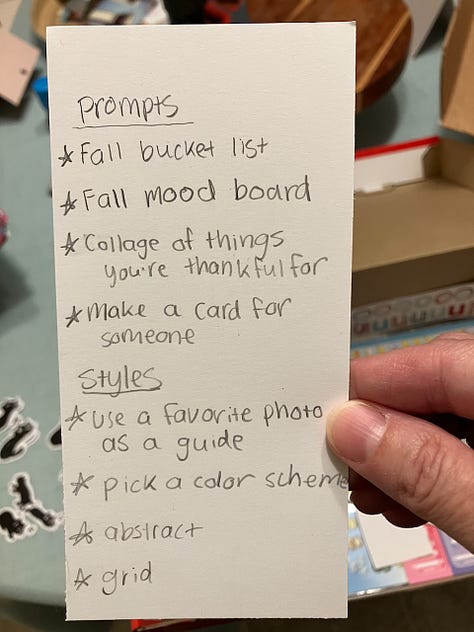 Prompts
☆ Fall bucket list
☆ Fall mood board
☆ Collage of things
you're thankful for
☆ Make a card for
someone
Styles
☆ Use a favorite photo
as a guide
☆ pick a color scheme
☆ abstract
☆ grid